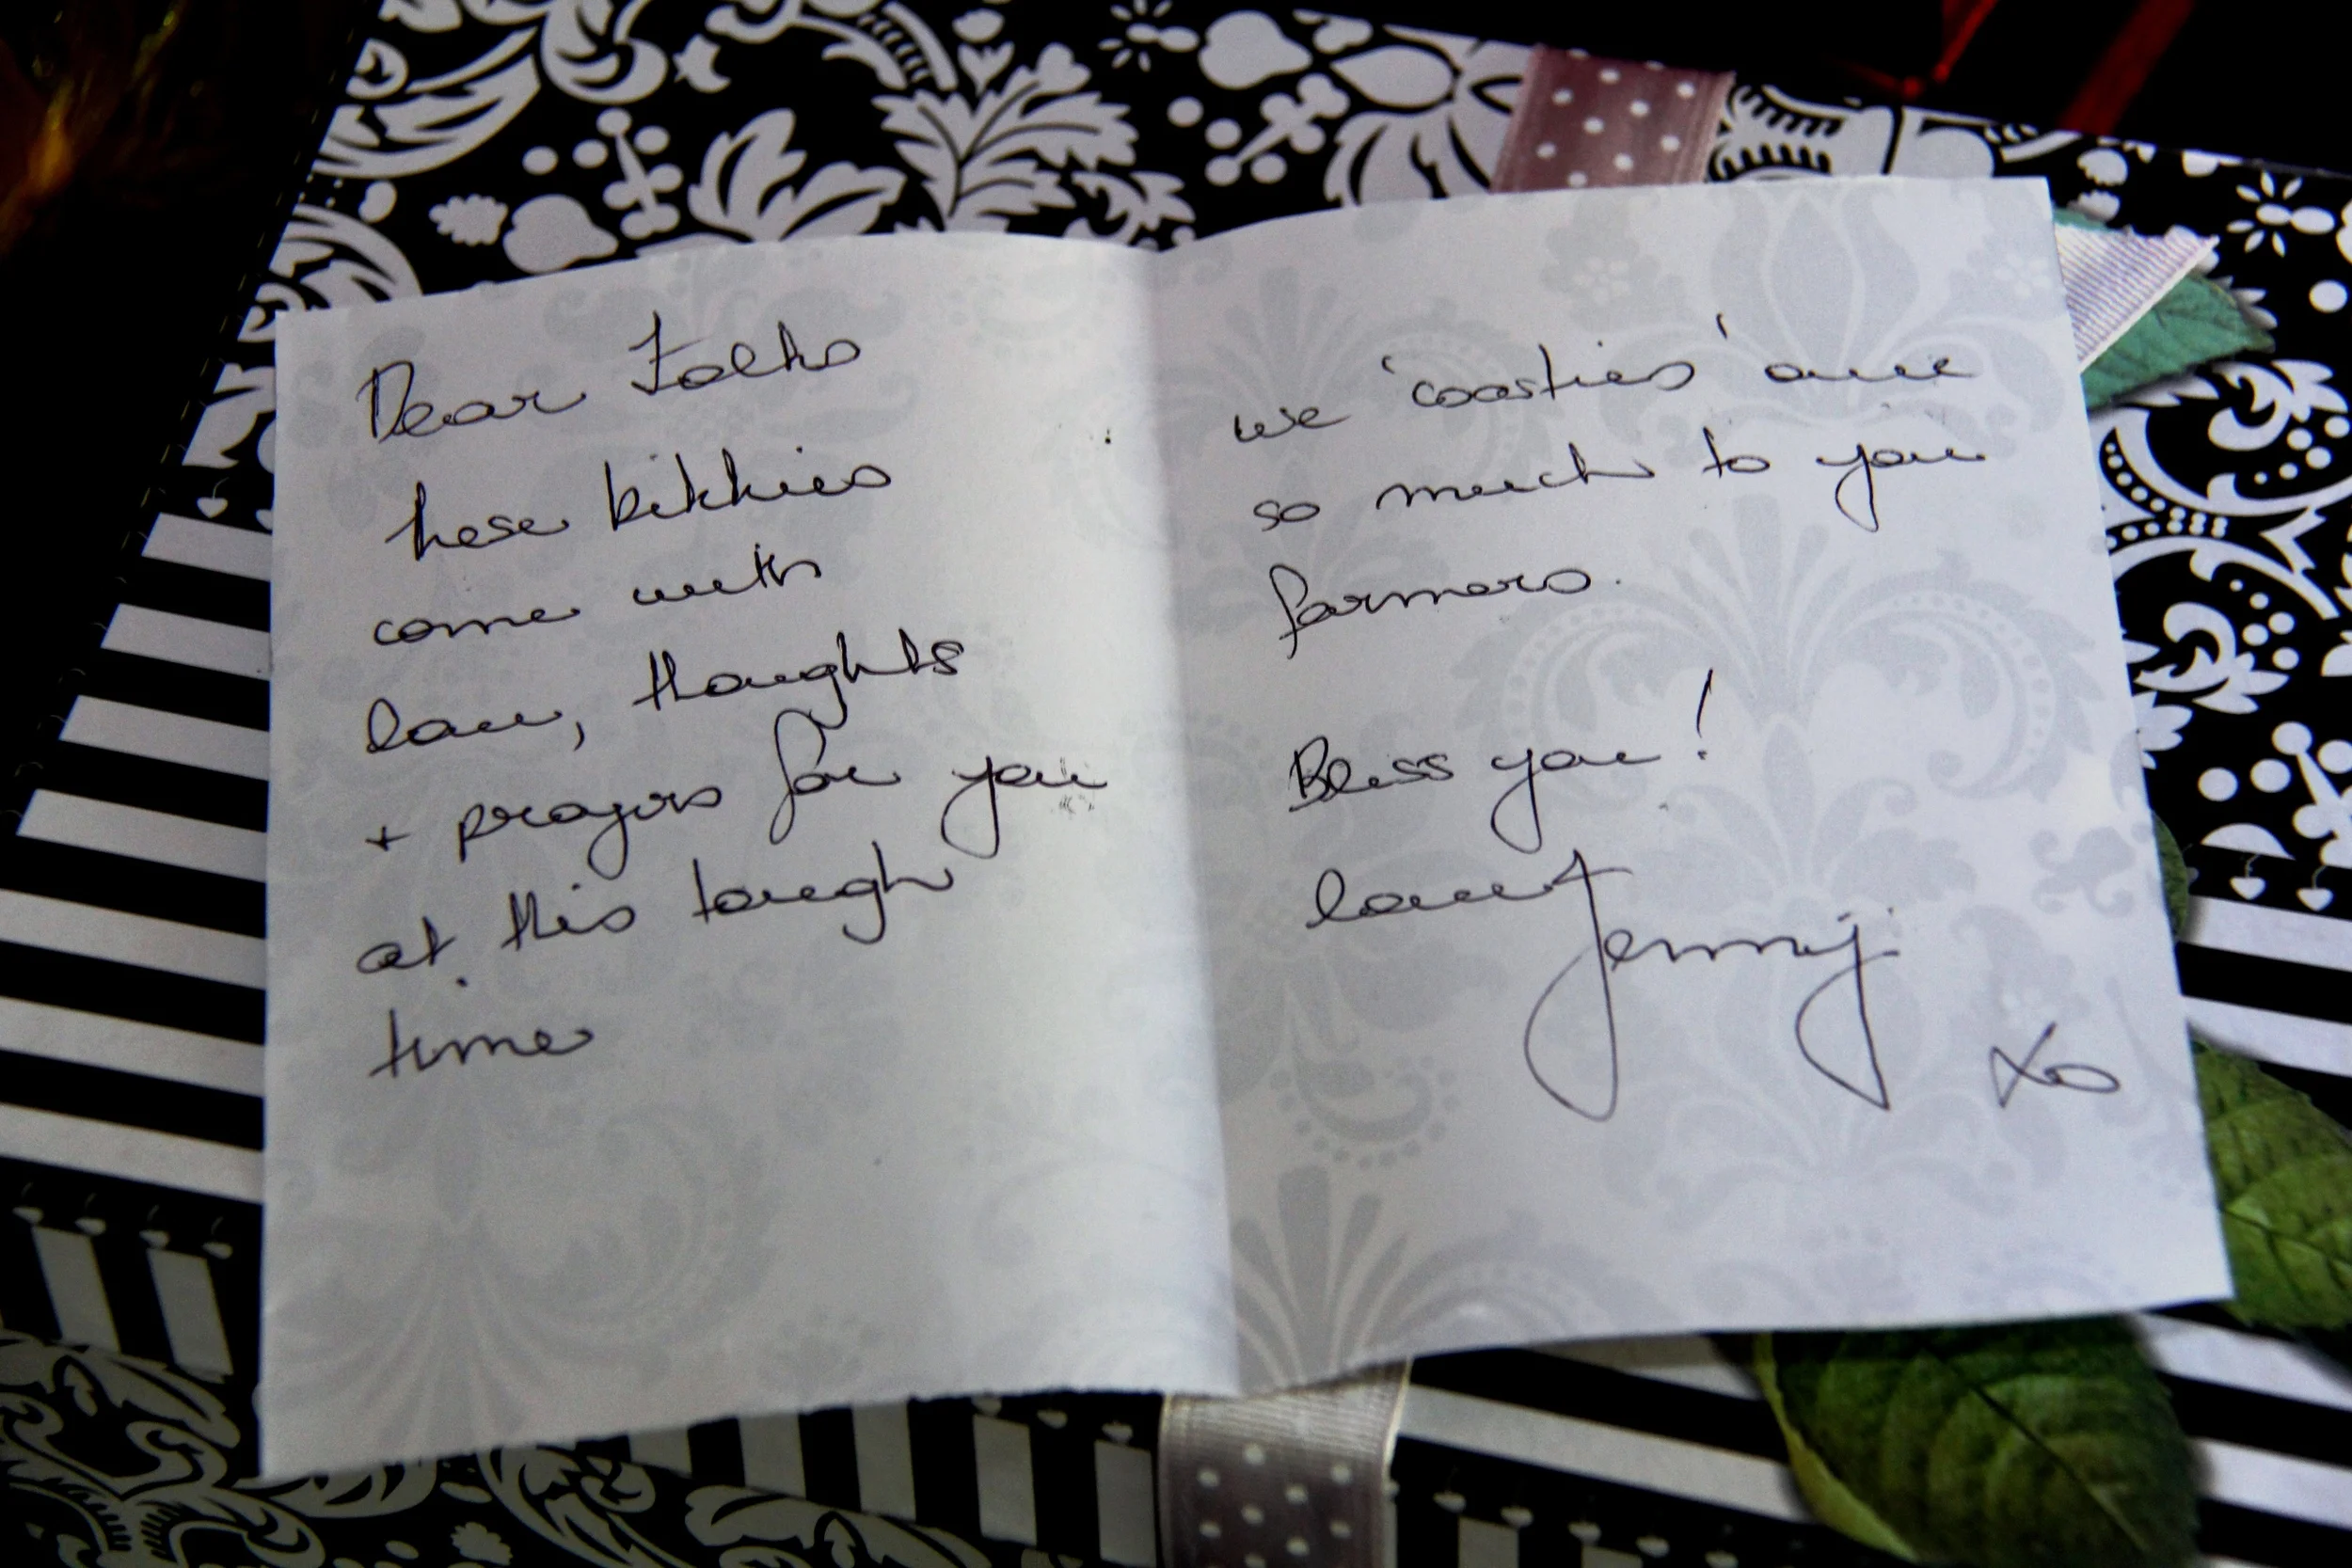 Dear Folks
these bikkies
come with
love, thoughts
+ prayers for you
at this tough
time
we 'coasties' owe
so much to you
farmers.
Bless you!
love
Jenny
xo